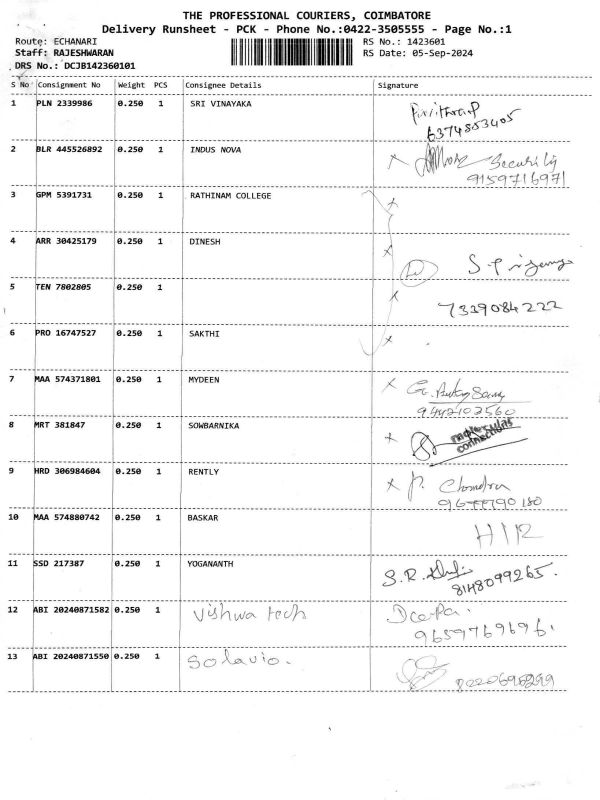 THE PROFESSIONAL COURIERS, COIMBATORE
Delivery Runsheet - PCK - Phone No.:0422-3505555 - Page No.:1
Route: ECHANARI RS No.: 1423601
Staff: RAJESHWARAN RS Date: 05-Sep-2024
DRS No.: DCJB142360101
S No Consignment No Weight PCS Consignee Details Signature
1 PLN 2339986 0.250 1 SRI VINAYAKA
6374853405
2 BLR 445526892 0.250 1 INDUS NOVA x Security
9159716971
3 GPM 5391731 0.250 1 RATHINAM COLLEGE x
4 ARR 30425179 0.250 1 DINESH x
5 TEN 7802805 0.250 1 x 7339084222
6 PRO 16747527 0.250 1 SAKTHI x
7 MAA 574371801 0.250 1 MYDEEN x
9442102560
8 MRT 381847 0.250 1 SOWBARNIKA x
connections
9 HRD 306984604 0.250 1 RENTLY x P. Chandra
9677790180
10 MAA 574880742 0.250 1 BASKAR
11 SSD 217387 0.250 1 YOGANANTH S.R.
8148099265.
12 ABI 20240871582 0.250 1 Vishwa tech Deepa.
9659769696.
13 ABI 20240871550 0.250 1 Solavio.